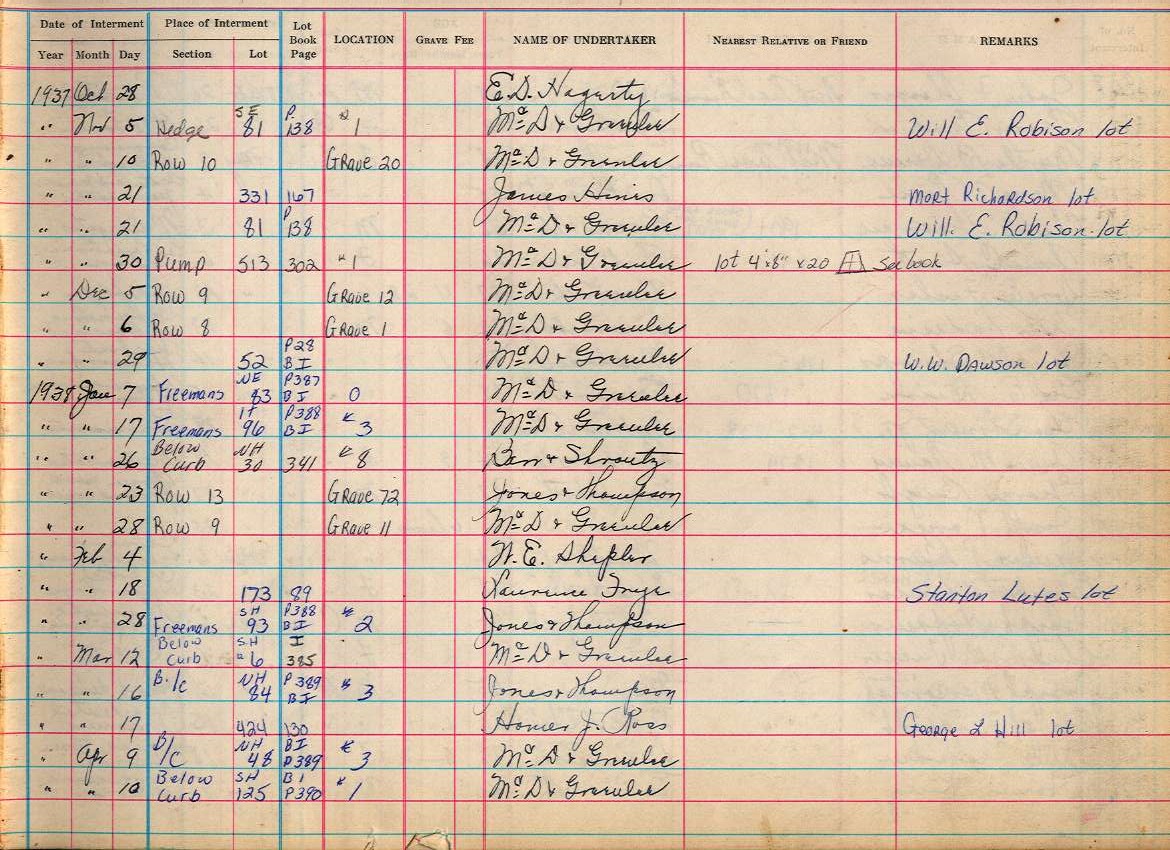 Date of Interment Place of Interment Lot Book Page LOCATION GRAVE FEE NAME OF UNDERTAKER NEAREST RELATIVE OR FRIEND REMARKS
Year Month Day Section Lot
1937 Oct 28 E. D. Hagerty
" Nov 5 Hedge SE 81 P. 138 1 McD & Greenlee Will E. Robison lot
" " 10 Row 10 Grave 20 McD & Greenlee
" " 21 331 167 James Hines Mort Richardson lot
" " 21 81 P 138 McD & Greenlee Will. E. Robison lot
" " 30 Pump 513 302 # 1 McD & Greenlee lot 4'x8" x 20 See book
" Dec 5 Row 9 Grave 12 McD & Greenlee
" " 6 Row 8 Grave 1 McD & Greenlee
" " 29 52 P28 B I McD & Greenlee W.W. Dawson lot
1938 Jan 7 Freemans NE 83 P387 B I 0 McD & Greenlee
" " 17 Freemans 96 P388 B I # 3 McD & Greenlee
" " 26 Below Curb NH 30 341 # 8 & Shroutz
" " 23 Row 13 Grave 72 Jones & Thompson
" " 28 Row 9 Grave 11 McD & Greenlee
" Feb 4 W. E. Shepler
" " 18 173 89 Lawrence Frye Stanton Lutes lot
" " 28 Freemans SH 93 P388 B I # 2 Jones & Thompson
" Mar 12 Below Curb SH " 6 I 385 McD & Greenlee
" " 16 B./c NH 84 P 389 B I # 3 Jones & Thompson
" " 17 424 130 Homer J. Ross George L Hill lot
" Apr 9 B/C NH 48 B I P389 # 3 McD & Greenlee
" " 10 Below Curb SH 125 B I P390 # 1 McD & Greenlee